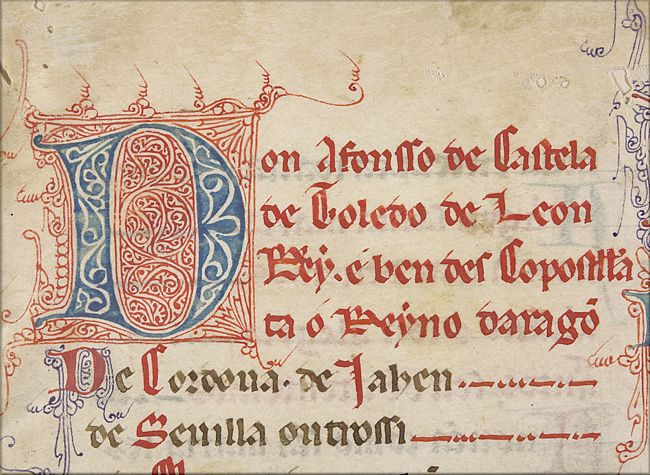 Don Afonsso de Castela
de Toledo de Leon
Rey. e ben des Copostella
ta o Reyno daragõ
De Cordova. de Jahen
de Sevilla outrossi